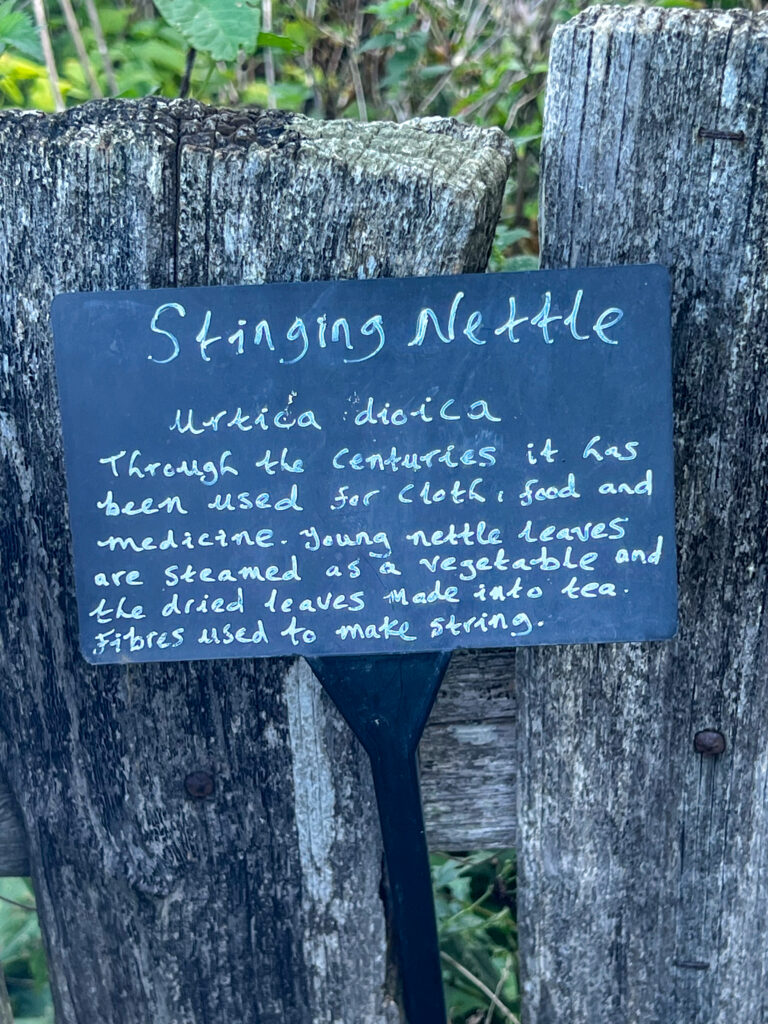 Stinging Nettle
Urtica dioica
Through the centuries it has
been used for cloth, food and
medicine. Young nettle leaves
are steamed as a vegetable and
the dried leaves made into tea.
Fibres used to make string.